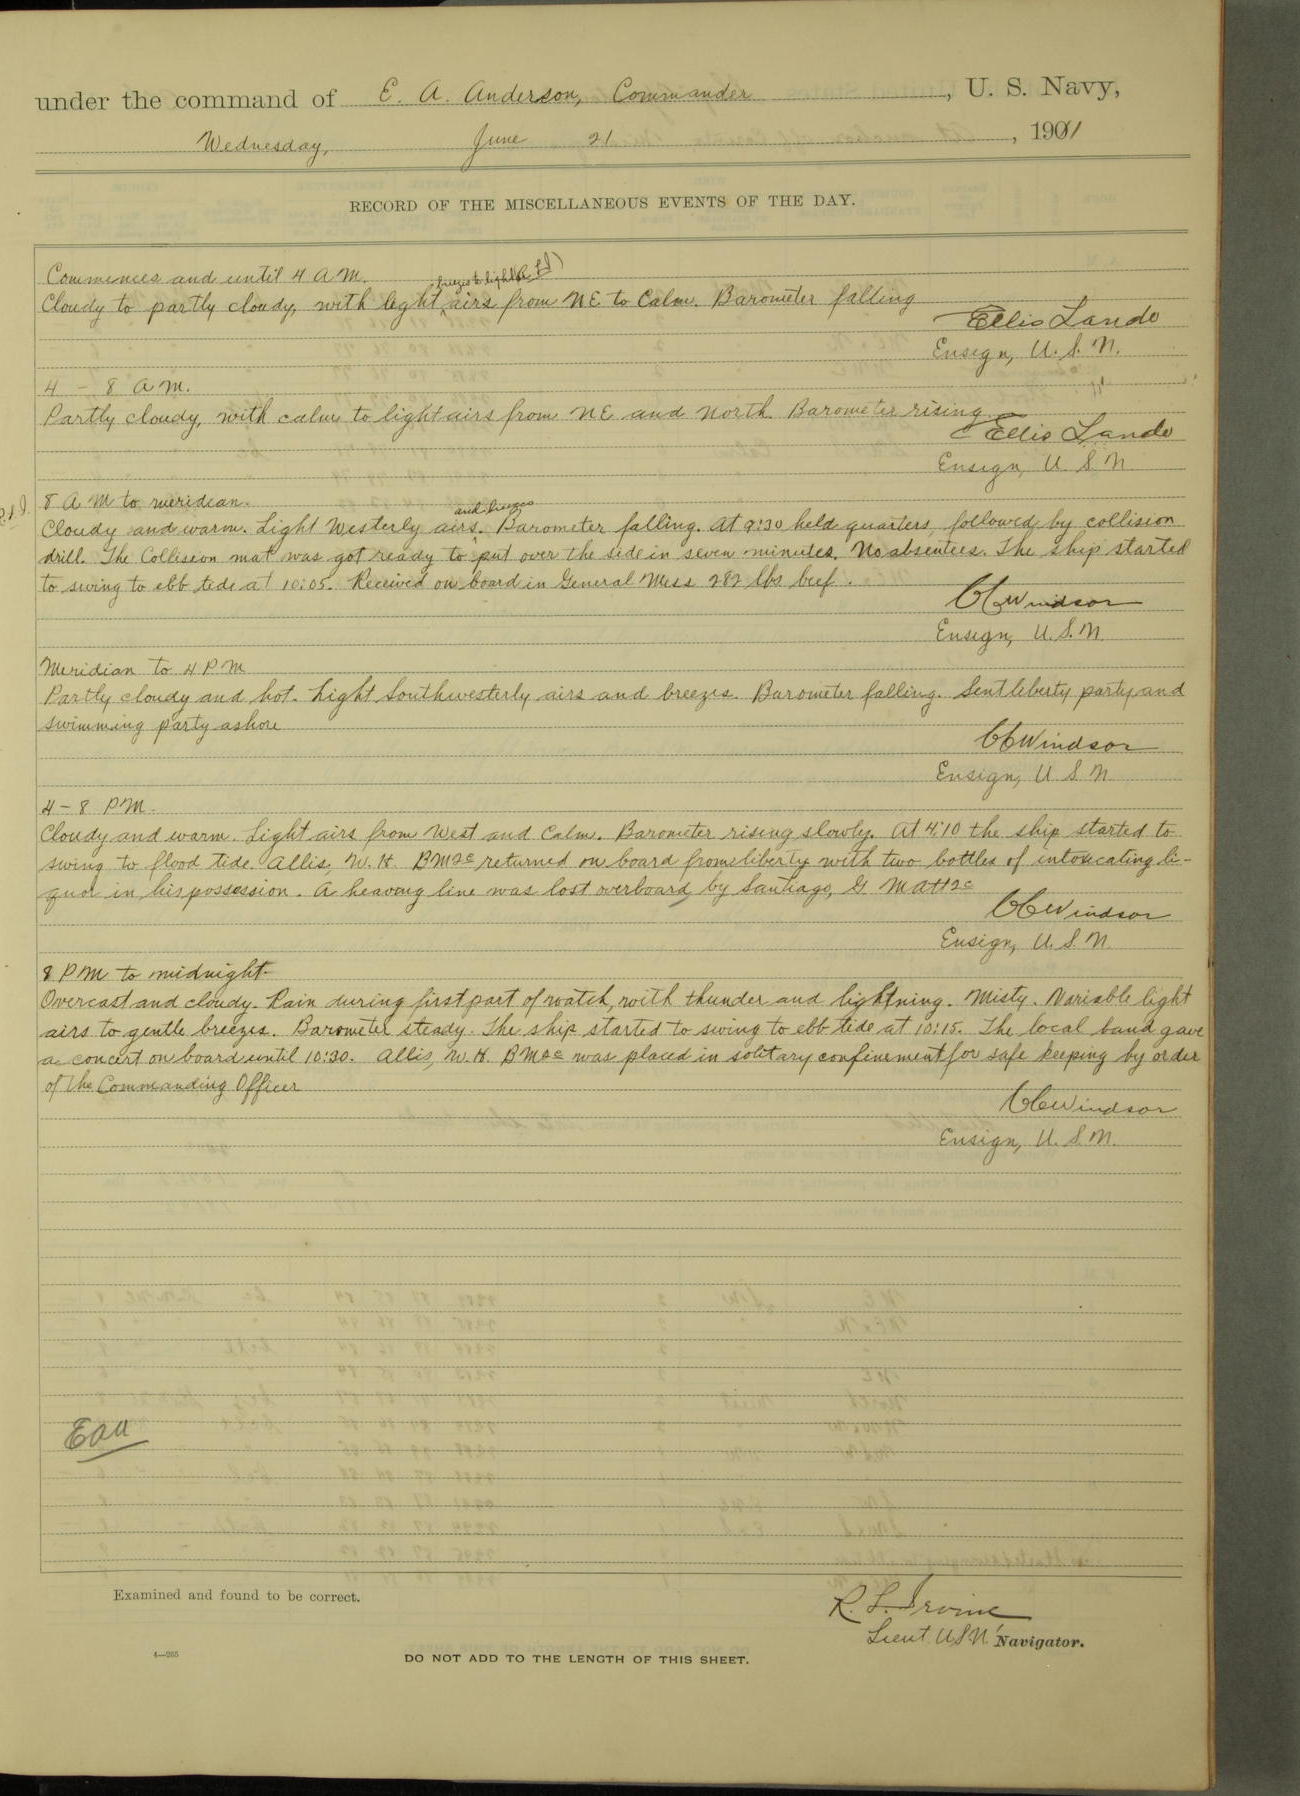 under the command of E. A. Anderson, Commander, U. S. Navy,
Wednesday, June 21, 1901
RECORD OF THE MISCELLANEOUS EVENTS OF THE DAY.
Commences and until 4 A M.
breezes to light
Cloudy to partly cloudy, with light airs from NE to Calm. Barometer falling
Ellis Lando
Ensign, U. S. N.
4 - 8 A M.
Partly cloudy, with calm to light airs from NE and North. Barometer rising
Ellis Lando
Ensign, U S N
8 A M to meridian.
and breezes
Cloudy and warm. Light Westerly airs. Barometer falling. At 9:30 held quarters, followed by collision
drill. The Collision mat was got ready to put over the side in seven minutes. No absentees. The ship started
to swing to ebb tide at 10:05. Received on board in General Mess 282 lbs beef.
CC Windsor
Ensign, U.S.N
Meridian to 4 P M
Partly cloudy and hot. Light Southwesterly airs and breezes. Barometer falling. Sent liberty party and
swimming party ashore
CC Windsor
Ensign, U S N
4 - 8 P M.
Cloudy and warm. Light airs from West and Calm. Barometer rising slowly. At 4:10 the ship started to
swing to flood tide. Allis, W. H. BM2c returned on board from liberty with two bottles of intoxicating li-
quor in his possession. A heaving line was lost overboard, by Santiago, G Matt2c
CC Windsor
Ensign, U.S.N.
8 P M to midnight-
Overcast and cloudy. Rain during first part of watch, with thunder and lightning. Misty. Variable light
airs to gentle breezes. Barometer steady. The ship started to swing to ebb tide at 10:15. The local band gave
a concert on board until 10:30. Allis, W. H. BM2c was placed in solitary confinement for safe keeping by order
of the Commanding Officer
CC Windsor
Ensign, U.S.N.
EAA
Examined and found to be correct.
R. L. Irvine
Lieut U.S.N. Navigator.
4—265
DO NOT ADD TO THE LENGTH OF THIS SHEET.